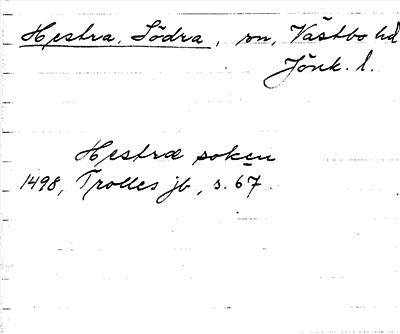 Hestra, Södra, sn, Västbo hd
Jönk. l.
Hestræ soken
1498, Trolles jb, s. 67.